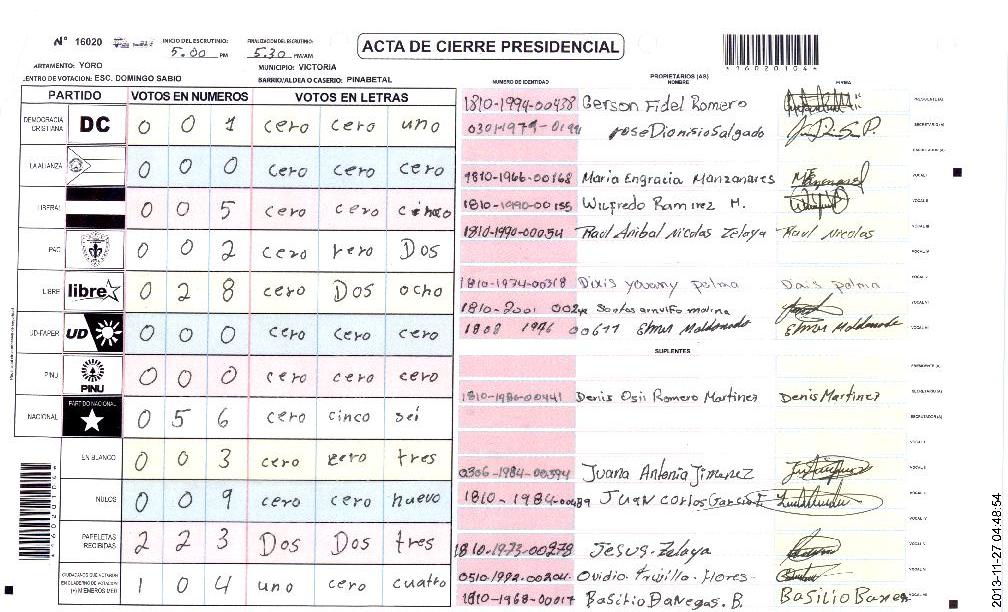 Nº 16020
INICIO DEL ESCRUTINIO: 5.00 PM
FINALIZACION DEL ESCRUTINIO: 5.30 PM/AM
ACTA DE CIERRE PRESIDENCIAL
ARTAMENTO: YORO
MUNICIPIO: VICTORIA
ENTRO DE VOTACION: ESC. DOMINGO SABIO
BARRIO/ALDEA O CASERIO: PINABETAL
PARTIDO VOTOS EN NUMEROS VOTOS EN LETRAS
DEMOCRACIA CRISTIANA DC 0 0 1 cero cero uno
LA ALIANZA 0 0 0 cero cero cero
LIBERAL 0 0 5 cero cero cinco
PAC 0 0 2 cero cero Dos
LIBRE libre 0 2 8 cero Dos ocho
UD-FAPER UD 0 0 0 cero cero cero
PINU PINU 0 0 0 cero cero cero
NACIONAL PARTIDO NACIONAL 0 5 6 cero cinco sei
EN BLANCO 0 0 3 cero cero tres
NULOS 0 0 9 cero cero nuevo
PAPELETAS RECIBIDAS 2 2 3 Dos Dos tres
CIUDADANOS QUE VOTARON EN CUADERNO DE VOTACION (+) MIEMBROS MER 1 0 4 uno cero cuatro
PROPIETARIOS (AS)
NUMERO DE IDENTIDAD NOMBRE FIRMA
1810-1994-00438 Gerson Fidel Romero PRESIDENTE (A)
0301-1979- Jose Dionisio Salgado SECRETARIO (A)
ESCRUTADOR (A)
1810-1966-00168 Maria Engracia Manzanares VOCAL I
1810-1990-00155 Wilfredo Ramirez M. VOCAL II
1810-1990-00054 Raul Anibal Nicolas Zelaya Raul Nicolas VOCAL III
VOCAL IV
1810-1974-00318 Dixis yovany palma palma VOCAL V
1810-2001 Santos arnulfo molina VOCAL VI
1808 1976 00611 Elmer Maldonado Elmer Maldonado VOCAL VII
SUPLENTES
PRESIDENTE (A)
1810-1986-00441 Denis Osii Romero Martinez Denis Martinez SECRETARIO (A)
ESCRUTADOR (A)
VOCAL I
0306-1984-00394 Juana Antonia Jimenez VOCAL II
1810-1984-00489 Juan Carlos Garcia VOCAL III
VOCAL IV
1810-1973-00278 Jesus Zelaya VOCAL V
0510-1992-00204 Ovidio Trujillo Flores VOCAL VI
1810-1968-00017 Basilio Banegas. B. Basilio Baneg VOCAL VII
2013-11-27 04:48:54